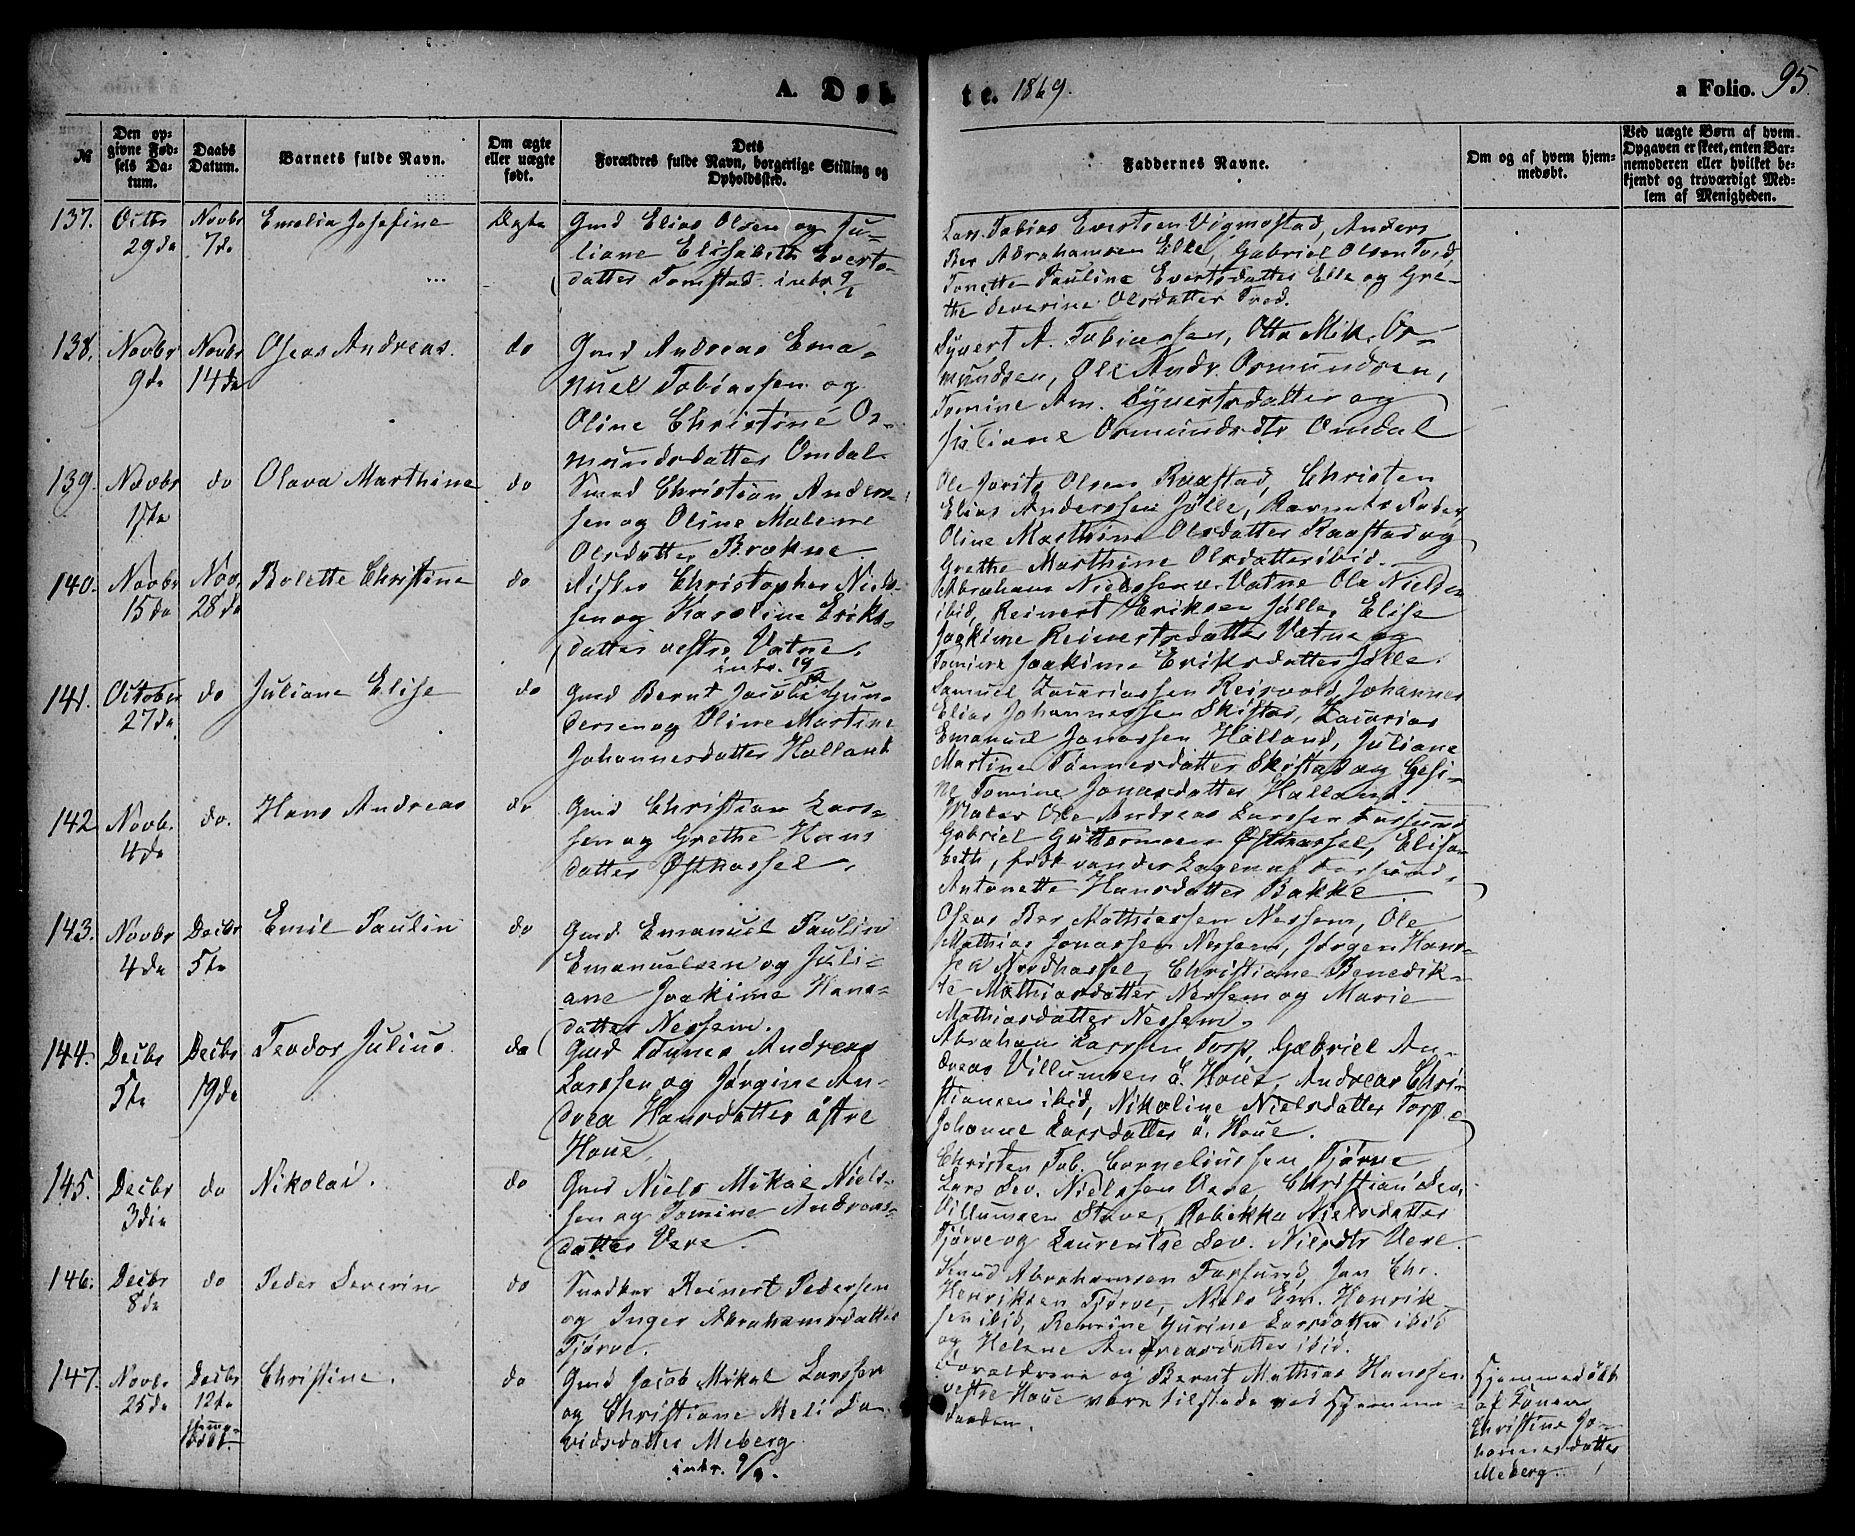 A. Døb-
te. 1869.
a Folio. 95.
№
Den op-
givne Fød-
sels Da-
tum.
Daabs
Datum.
Barnets fulde Navn.
Om ægte
eller uægte
født.
Dets
Forældres fulde Navn, borgerlige Stilling og
Opholdssted.
Faddernes Navne.
Om og af hvem hjem-
medøbt.
Ved uægte Børn af hvem
Opgaven er skeet, enten Bar-
nemoderen eller hvilket be-
kjendt og troværdigt Med-
lem af Menigheden.
137.
Octbr
29de
Novbr
7de
Emelia Josefine
Ægte
Gmd Elias Olsen og Ju-
liane Elisabeth Everts-
datter Tomstad. intr. 9/1
Lars Tobias Evertsen Vigmostad, Anders
Ber Abrahamsen Elle, Gabriel Olsen Tved,
Tonette Pauline Evertsdatter Elle og Gre-
the Severine Olsdatter Tved.
138.
Novbr
9de
Novbr
14de
Oseas Andreas.
do
Gmd Andreas Ema-
nuel Tobiassen og
Oline Christine Os-
mundsdatter Omdal
Syvert A. Tobiassen, Otto Mik. Os-
mundsen, Ole Andr. Osmundsen,
Tomine Am. Syvertsdatter og
Juliane Osmundsdtr Omdal
139.
Novbr
1ste
do
Olava Marthine
do
Smed Christian Anders-
sen og Oline Malene
Olsdatter Brækne
Ole Olsen Raastad, Christen
Elias Anderssen Jølle, Barnets Fader,
Oline Marthine Olsdatter Raastad og
Grethe Marthine Olsdatter ibid.
140.
Novbr
15de
Nov.
28de
Bolette Christine
do
Fisker Christopher Niels-
sen og Karoline Eriks-
datter vestre Vatne.
intr. 19/12
Abraham Nielssen v. Vatne Ole Nielsen
ibid, Reinert Eriksen Jølle, Elise
Joakime Reinertsdatter Vatne og
Tomine Joakime Eriksdatter Jølle.
141.
October
27de
do
Juliane Elise
do
Gmd Bernt Jacob Gun-
dersen og Oline Martine
Johannesdatter Halland
Samuel Zacariassen Reisvold, Johannes
Elias Johannessen Skistad, Zacarias
Emanuel Jonassen Halland, Juliane
Martine Tønnesdatter Skistad og Gesi-
ne Tomine Jonasdatter Halland.
142
Novb.
4de
do.
Hans Andreas
do
Gmd Christian Lars-
sen og Grethe Hans
datter Østhassel.
Maler Ole Andreas Larssen Farsund
Gabriel Guttormsen Østhassel, Elisa-
beth, født van der Lagen af Farsund,
Antonette Hansdatter Bakke.
143.
Novbr
4de
Decbr
5te
Emil Paulin
do
Gmd. Emanuel Paulin
Emanuelsen og Juli-
ane Joakime Hans-
datter Nessem.
Oseas Ber Mathiassen Nessem, Ole
Mathias Jonassen Nessem, Jørgen Hans-
sen Nordhassel, Christiane Benedik-
te Mathiasdatter Nessem og Marie
Mathiasdatter Nessem.
144.
Decbr
5te
Decbr
19de
Teodor Julius.
do
Gmd Tønnes Andreas
Larssen og Jørgine An-
drea Hansdatter østre
Houe
Abraham Larssen Torp, Gabriel An-
dreas Villumsen ø. Houe, Andreas Chri-
stiansen ibid, Nikoline Nielsdatter Torp o
Johanne Larsdatter ø. Houe.
145.
Decbr
3die
do
Nikolai.
do
Gmd Niels Mikal Niels-
sen og Tomine Andreas-
datter Vere.
Christen Tob. Corneliussen Tjørve
Lars Sev. Nielssen Vere, Christian Sev.
Villumsen Stave, Rebekka Nielsdatter
Tjørve og Laurentse Sev. Nielsdtr Vere.
146.
Decbr
8de
do
Peder Severin
do
Snedker Reinert Pedersen
og Inger Abrahamsdatter
Tjørve.
Knud Abrahamsen Farsund, Jan Chr.
Henriksen Tjørve, Niels Em. Henrik-
sen ibid, Remine Gurine Larsdatter ibid
og Helene Andreasdatter ibid.
147.
Novbr
25de
Decbr
12te
hjemme-
døbt
Christine.
do
Gmd Jacob Mikal Larssen
og Christiane Meli Da-
vidsdatter Meberg
intr. 9/1.
Forældrene og Bernt Mathias Hanssen
vestre Houe vare tilstede ved Hjemme-
daaben.
Hjemmedøbt
af Konen
Christine Jo-
hannesdatter
Meberg.